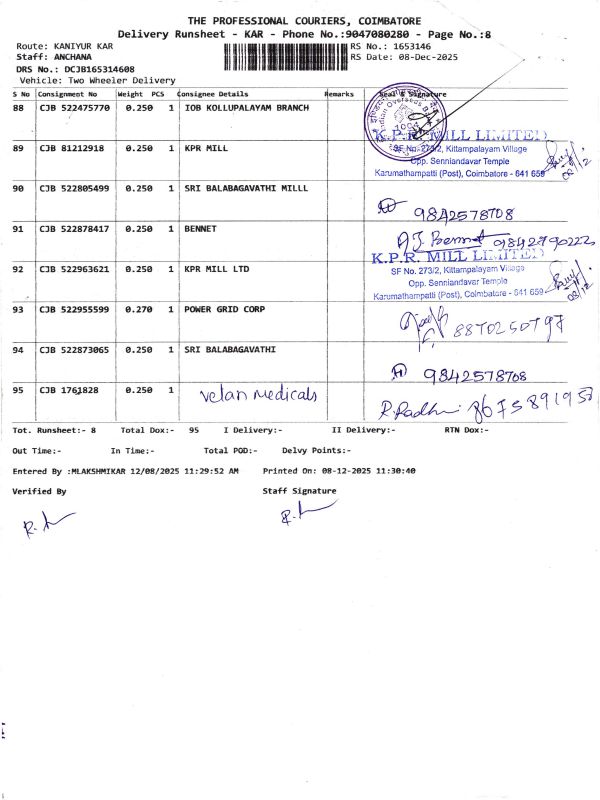 THE PROFESSIONAL COURIERS, COIMBATORE
Delivery Runsheet - KAR - Phone No.:9047080280 - Page No.:8
Route: KANIYUR KAR RS No.: 1653146
Staff: ANCHANA RS Date: 08-Dec-2025
DRS No.: DCJB165314608
Vehicle: Two Wheeler Delivery
S No Consignment No Weight PCS Consignee Details Remarks Seal & Signature
88 CJB 522475770 0.250 1 IOB KOLLUPALAYAM BRANCH
Indian Overseas
K.P.R. MILL LIMITED
89 CJB 81212918 0.250 1 KPR MILL SF No. 273/2, Kittampalayam Village
Opp. Senniandavar Temple
Karumathampatti (Post), Coimbatore - 641 659
08/12
90 CJB 522805499 0.250 1 SRI BALABAGAVATHI MILLL
9842578708
91 CJB 522878417 0.250 1 BENNET
A.J. Bennet 9842790222
K.P.R. MILL LIMITED
92 CJB 522963621 0.250 1 KPR MILL LTD SF No. 273/2, Kittampalayam Village
Opp. Senniandavar Temple
Karumathampatti (Post), Coimbatore - 641 659
08/12
93 CJB 522955599 0.270 1 POWER GRID CORP
8870250797
94 CJB 522873065 0.250 1 SRI BALABAGAVATHI
9842578708
95 CJB 1761828 0.250 1 velan medicals
R.Radha
Tot. Runsheet:- 8 Total Dox:- 95 I Delivery:- II Delivery:- RTN Dox:-
Out Time:- In Time:- Total POD:- Delvy Points:-
Entered By :MLAKSHMIKAR 12/08/2025 11:29:52 AM Printed On: 08-12-2025 11:30:40
Verified By Staff Signature